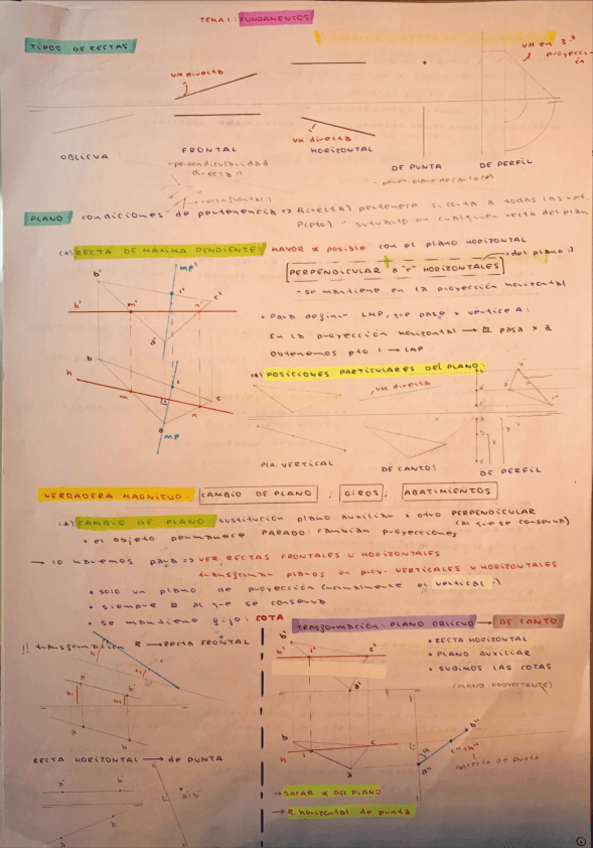 TEMA 1: FUNDAMENTOS
TIPOS DE RECTAS
VM directa
VM en 3ª proyección
OBLICUA
FRONTAL
VM directa
HORIZONTAL
DE PUNTA
DE PERFIL
PLANO condiciones de pertenencia => R(recta) pertenece si corta a todas las
P(pto) - situarlo en cualquier recta del plan
RECTA DE MÁXIMA PENDIENTE MAYOR α posible con el plano HORIZONTAL
PERPENDICULAR a "r" HORIZONTALES del plano :)
- se mantiene en la proyección horizontal
• Para definir LMP, que pase x vértice A:
En la proyección horizontal → pasa x a
Obtenemos pto 1 → LMP
mp'
b'
h'
m'
1'
n'
c'
a'
b
h
m
1
n
c
a
mp
POSICIONES PARTICULARES DEL PLANO:
VM directa
PLA. VERTICAL
DE CANTO!
DE PERFIL
VERDADERA MAGNITUD: CAMBIO DE PLANO ; GIROS; ABATIMIENTOS
CAMBIO DE PLANO sustitución plano auxiliar x otro PERPENDICULAR (al que se conserva)
• el objeto permanece PARADO: cambian proyecciones
→ lo haremos para => VER RECTAS FRONTALES U HORIZONTALES
transformar planos en proy. VERTICALES U HORIZONTALES
• solo un plano de proyección (normalmente el vertical :)
• siempre al que se conserva
• se mantiene fijo: COTA
!! transformación R → RECTA FRONTAL
a'
b'
a
b
RECTA HORIZONTAL → de PUNTA
a'
b'
a
b
a'≡b'
TRANSFORMACIÓN: PLANO OBLICUO → DE CANTO
• RECTA HORIZONTAL
• PLANO AUXILIAR
• SUBIMOS LAS COTAS
(PLANO PROYECTANTE)
b'
h'
1'
c'
a'
b
h
1
c
a
b''
α
c''
a''
recta de punta
→ SACAR α DEL PLANO
→ R horizontal de punta